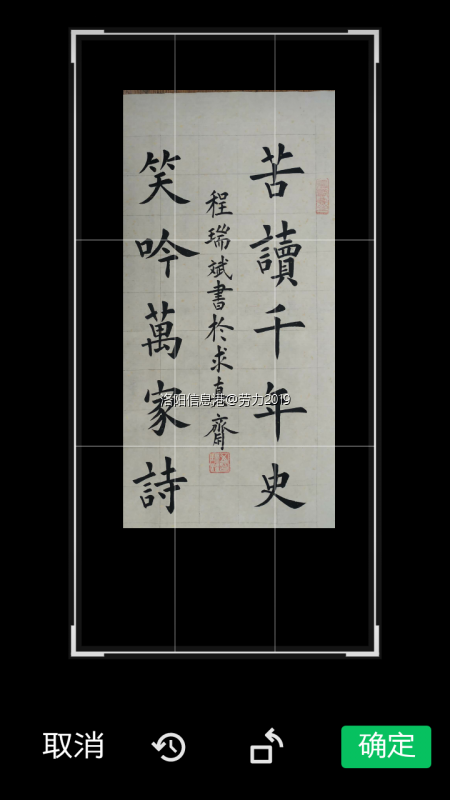 苦讀千年史
笑吟萬家詩
程瑞斌書於求真齋
洛阳信息港@劳力2019
取消
确定